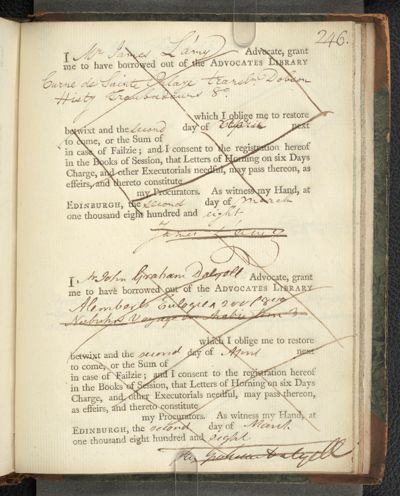 246.
I Mr James L'amy Advocate, grant
me to have borrowed out of the ADVOCATES LIBRARY
Curne de Sainte Palaye transln Dobson
Histy Troubadours 8o.
which I oblige me to restore
betwixt and the second day of April next
to come, or the Sum of
in case of Failzie; and I consent to the registration hereof
in the Books of Session, that Letters of Horning on six Days
Charge, and other Executorials needful, may pass thereon, as
effeirs, and thereto constitute
my Procurators. As witness my Hand, at
EDINBURGH, the second day of March
one thousand eight hundred and eight
James L'amy
I Mr John Graham Dalyell Advocate, grant
me to have borrowed out of the ADVOCATES LIBRARY
Alembert Eulogies
Niebuhr Voyage en Arabie
which I oblige me to restore
betwixt and the second day of April next
to come, or the Sum of
in case of Failzie; and I consent to the registration hereof
in the Books of Session, that Letters of Horning on six Days
Charge, and other Executorials needful, may pass thereon,
as effeirs, and thereto constitute
my Procurators. As witness my Hand, at
EDINBURGH, the second day of March
one thousand eight hundred and eight
Graham Dalyell